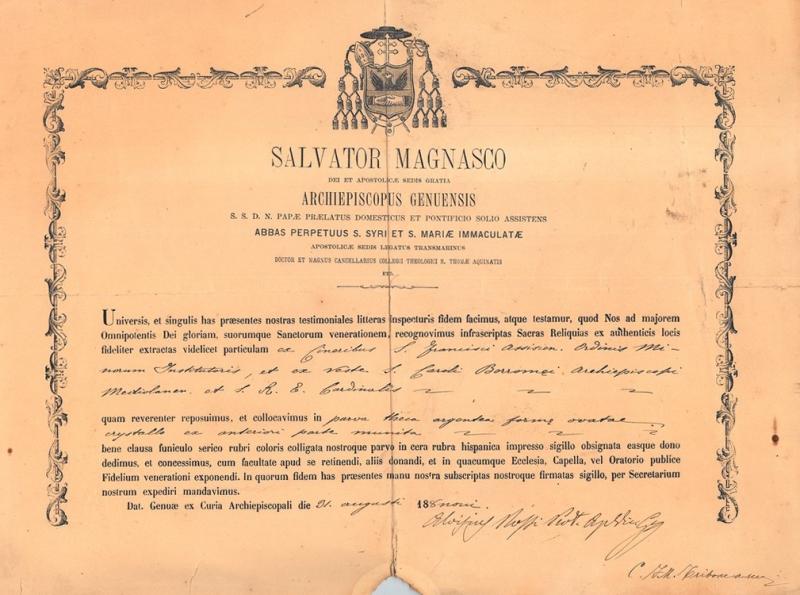 SALVATOR MAGNASCO
DEI ET APOSTOLICÆ SEDIS GRATIA
ARCHIEPISCOPUS GENUENSIS
S. S. D. N. PAPÆ PRÆLATUS DOMESTICUS ET PONTIFICIO SOLIO ASSISTENS
ABBAS PERPETUUS S. SYRI ET S. MARIÆ IMMACULATÆ
APOSTOLICÆ SEDIS LEGATUS TRANSMARINUS
DOCTOR ET MAGNUS CANCELLARIUS COLLEGII THEOLOGICI S. THOMÆ AQUINATIS
ETC.
Universis, et singulis has præsentes nostras testimoniales litteras inspecturis fidem facimus, atque testamur, quod Nos ad majorem
Omnipotentis Dei gloriam, suorumque Sanctorum venerationem, recognovimus infrascriptas Sacras Reliquias ex authenticis locis
fideliter extractas videlicet particulam ex Cineribus S. Francisci Assisien. Ordinis Mi-
norum Institutoris, et ex Veste S. Caroli Borromei Archiepiscopi
Mediolanen. et S. R. E. Cardinalis
quam reverenter reposuimus, et collocavimus in parva theca argentea formæ ovatae,
crystallo ex anteriori parte munita
bene clausa funiculo serico rubri coloris colligata nostroque parvo in cera rubra hispanica impresso sigillo obsignata easque dono
dedimus, et concessimus, cum facultate apud se retinendi, aliis donandi, et in quacumque Ecclesia, Capella, vel Oratorio publice
Fidelium venerationi exponendi. In quorum fidem has præsentes manu nostra subscriptas nostroque firmatas sigillo, per Secretarium
nostrum expediri mandavimus.
Dat. Genuæ ex Curia Archiepiscopali die 21. augusti 188noni.
Aloisius Rossi